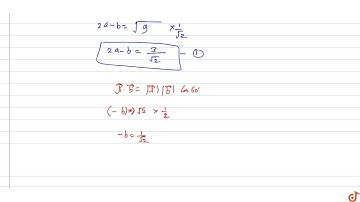 2a-b = √9 × 1/√2
2a-b = 3/√2 - ①
|a⃗| |b⃗| cos 60
× 1/2
-b = 1/√2